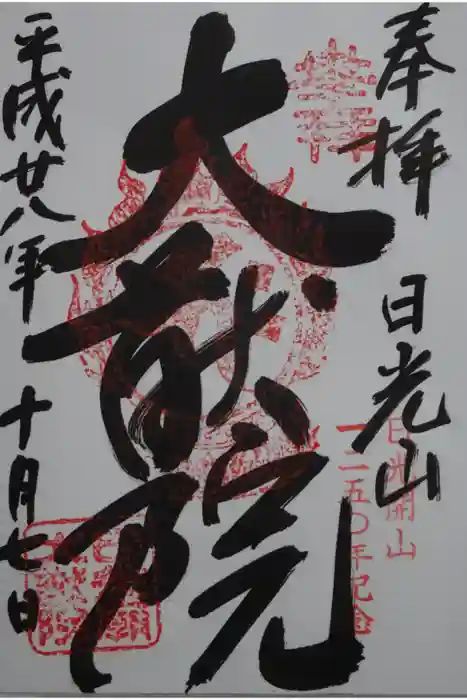 奉拝 日光山
日光開山
一二五〇年記念
大猷院
平成廿八年十月七日